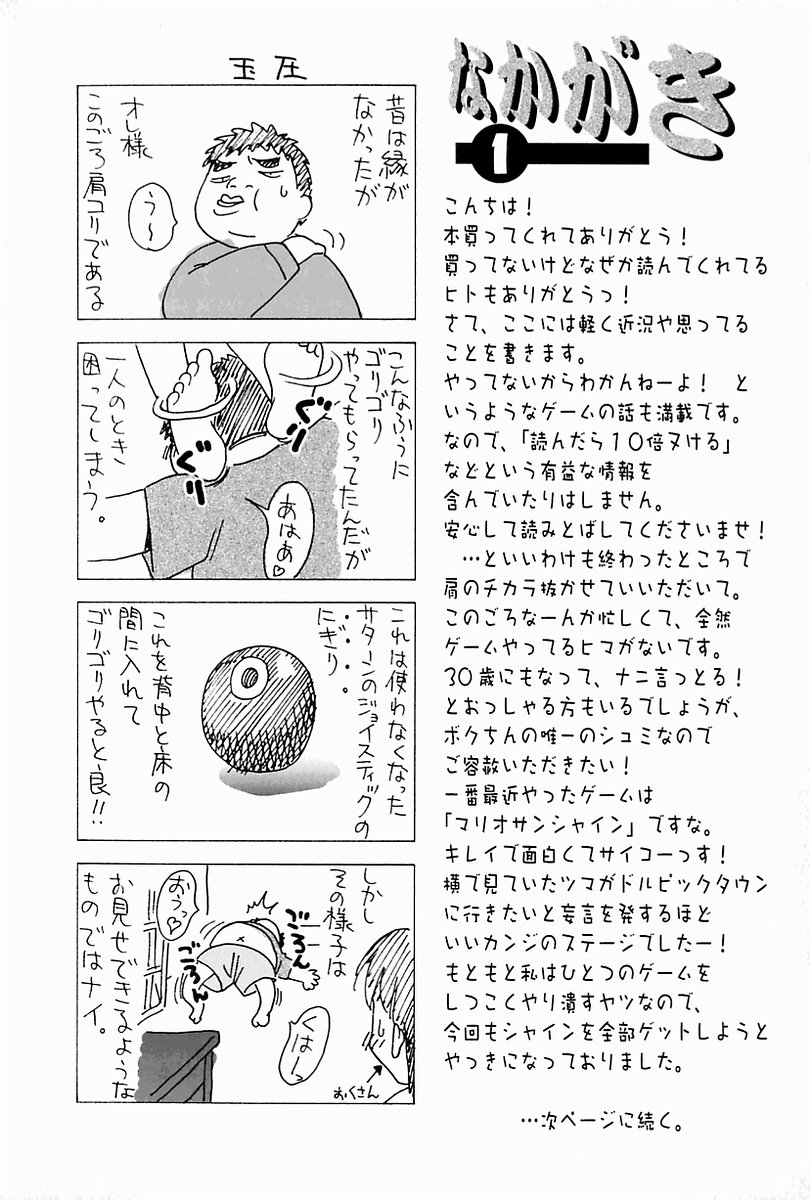 なかがき
1
こんちは！
本買ってくれてありがとう！
買ってないけどなぜか読んでくれてる
ヒトもありがとうっ！
さて、ここには軽く近況や思ってる
ことを書きます。
やってないからわかんねーよ！　と
いうようなゲームの話も満載です。
なので、「読んだら１０倍ヌける」
などという有益な情報を
含んでいたりはしません。
安心して読みとばしてくださいませ！
…といいわけも終わったところで
肩のチカラ抜かせていいただいて。
このごろなーんか忙しくて、全然
ゲームやってるヒマがないです。
30歳にもなって、ナニ言っとる！
とおっしゃる方もいるでしょうが、
ボクちんの唯一のシュミなので
ご容赦いただきたい！
一番最近やったゲームは
「マリオサンシャイン」ですな。
キレイで面白くてサイコーっす！
横で見ていたツマがドルピックタウン
に行きたいと妄言を発するほど
いいカンジのステージでしたー！
もともと私はひとつのゲームを
しつこくやり潰すヤツなので、
今回もシャインを全部ゲットしようと
やっきになっておりました。
…次ページに続く。
玉圧
昔は縁が
なかったが
オレ様
このごろ肩コリである
う〜
こんなふうに
ゴリゴリ
やってもらってたんだが
ぐっ
ぐっ
あはあ♡
一人のとき
困ってしまう。
これは使わなくなった
サターンのジョイスティックの
にぎり・・・。
これを背中と床の
間に入れて
ゴリゴリやると良!!
しかし
その様子は
ごろん
ごろん
おうっ♡
くはーっ
おくさん
お見せできるような
ものではナイ。